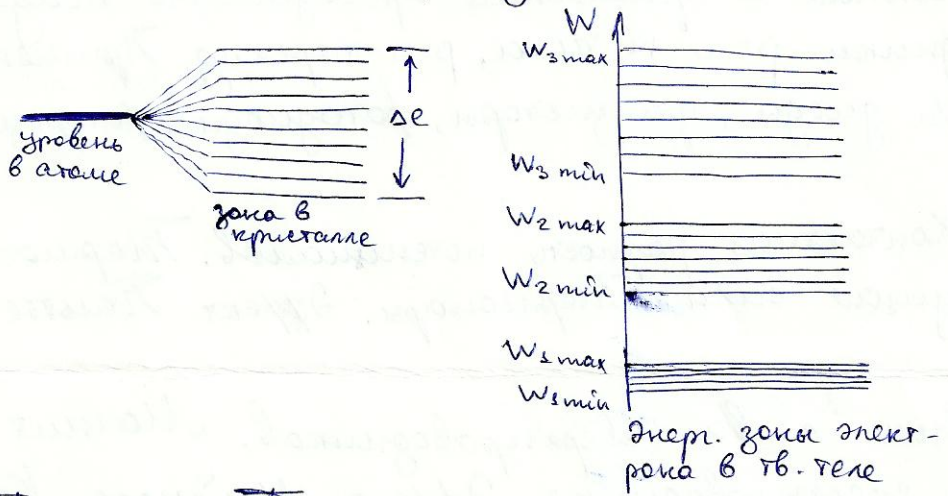 уровень
в атоме
зона в
кристалле
Δe
W
W3 max
W3 min
W2 max
W2 min
W1 max
W1 min
Энерг. зоны элект-
рона в тв. теле